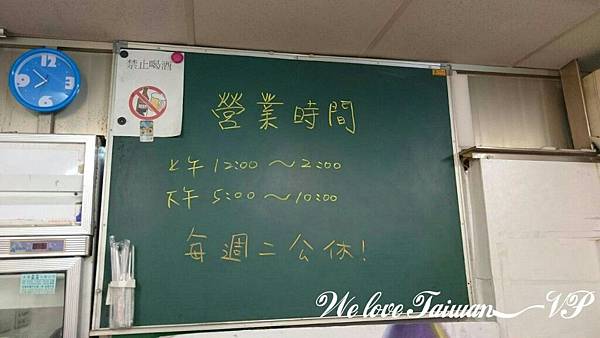 禁止喝酒
營業時間
上午 12:00 ~ 2:00
下午 5:00 ~ 10:00
每週二公休!
We love Taiwan VP